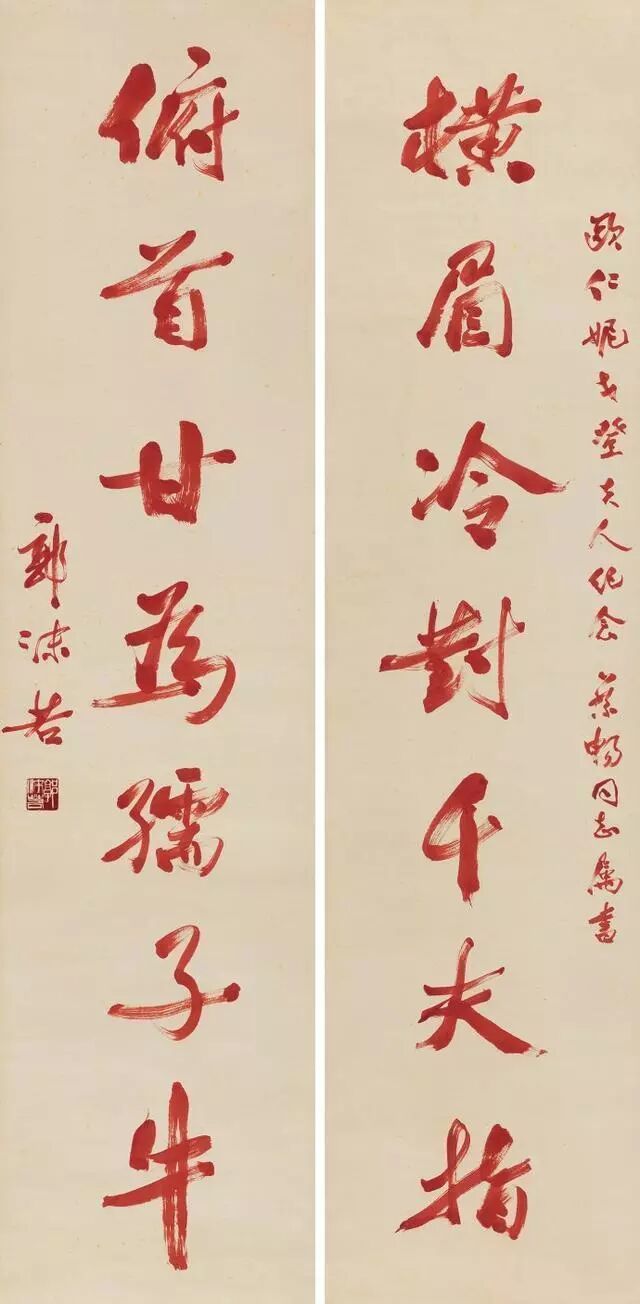 欧仁妮戈登夫人纪念 蔡畅同志属书
横眉冷對千夫指
俯首甘為孺子牛
郭沫若
郭沫若